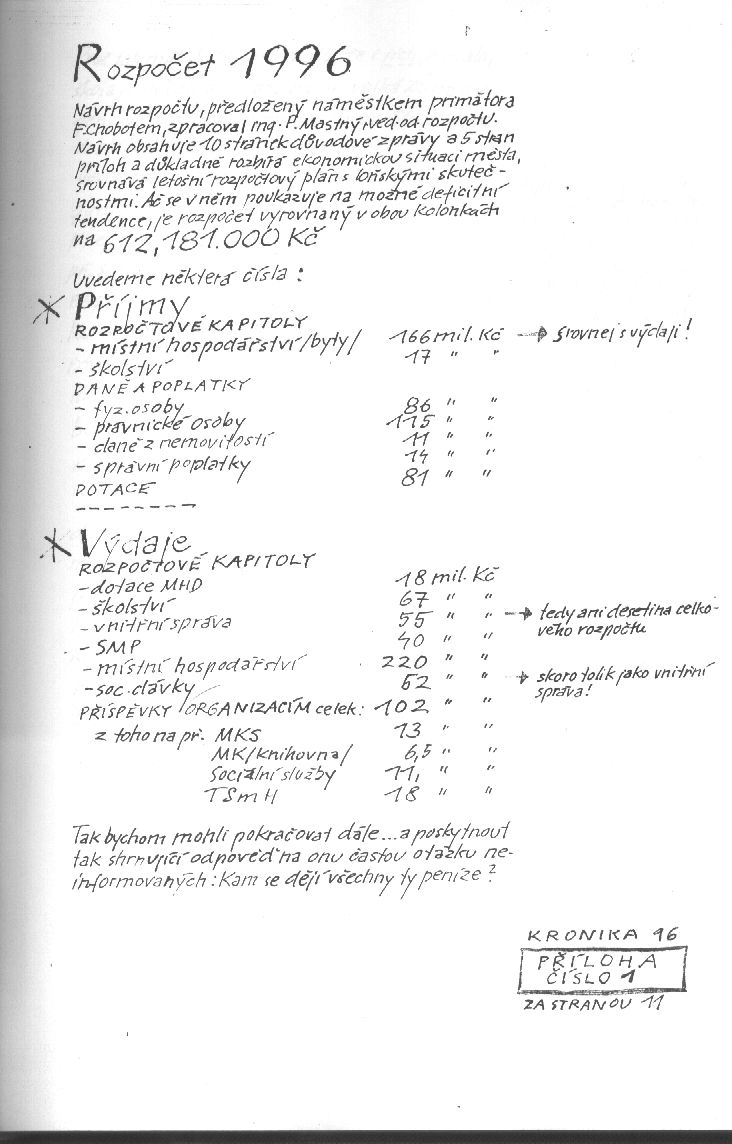 Rozpočet 1996
Návrh rozpočtu, předložený náměstkem primátora
F.Chobotem, zpracoval ing. P.Mastný, ved.od.rozpočtu.
Návrh obsahuje 10 stránek důvodové zprávy a 5 stran
příloh a důkladně rozbírá ekonomickou situaci města,
srovnává letošní rozpočtový plán s loňskými skuteč-
nostmi. Ač se v něm poukazuje na možné deficitní
tendence, je rozpočet vyrovnaný v obou kolonkách
na 612,181.000 Kč
Uvedeme některá čísla :
Příjmy
ROZPOČTOVÉ KAPITOLY
- místní hospodářství /byty/ 166 mil. Kč → Srovnej s výdaji!
- školství 17 " "
DANĚ A POPLATKY
- fyz. osoby 86 " "
- právnické osoby 115 " "
- daně z nemovitostí 11 " "
- správní poplatky 14 " "
DOTACE 81 " "
Výdaje
ROZPOČTOVÉ KAPITOLY
- dotace MHD 18 mil. Kč
- školství 67 " "
- vnitřní správa 55 " " → tedy ani desetina celko-
vého rozpočtu
- SMP 40 " "
- místní hospodářství 220 " "
- soc. dávky 52 " " → skoro tolik jako vnitřní
správa!
PŘÍSPĚVKY ORGANIZACÍM celek: 102 " "
z toho na př. MKS 13 " "
MK /knihovna/ 6,5 " "
Sociální služby 11, " "
TSmH 18 " "
Tak bychom mohli pokračovat dále... a poskytnout
tak shrnující odpověď na onu častou otázku ne-
informovaných : Kam se dějí všechny ty peníze?
KRONIKA 96
PŘÍLOHA
ČÍSLO 1
ZA STRANOU 11